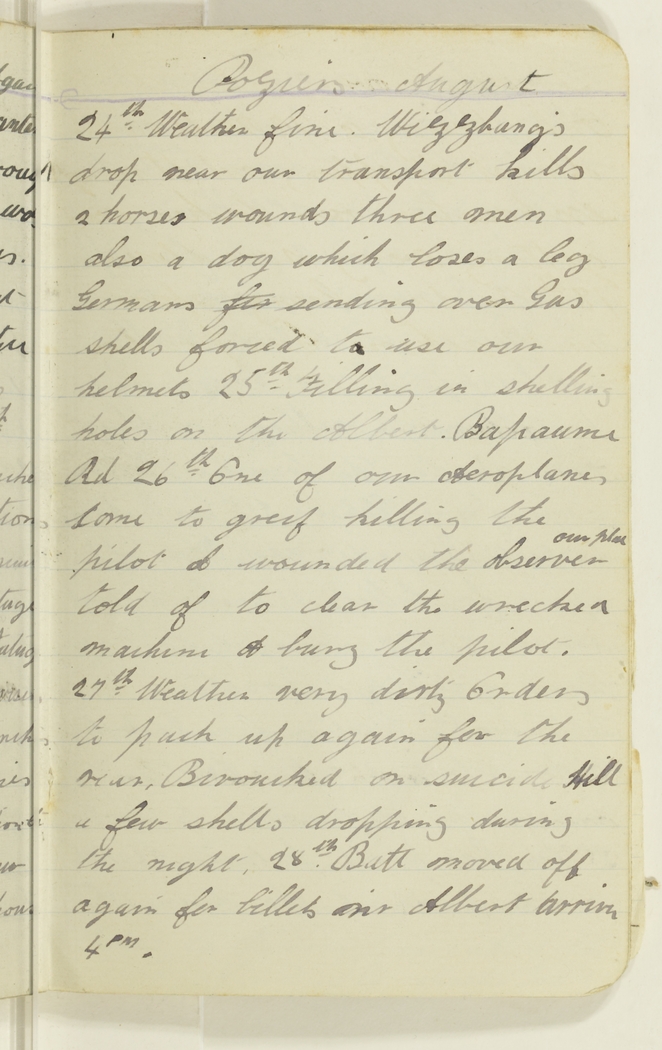 Poziers August
24th Weather fine. Wizzbangs
drop near our transport kills
2 horses wounds three men
also a dog which loses a leg
Germans for sending over Gas
shells forced to use our
helmets 25th Filling in shelling
holes on the Albert. Bapaume
Rd 26th One of our Aeroplanes
come to greif killing the
pilot & wounded the observer our plat
told of to clear the wrecked
machine & bury the pilot.
27th Weather very dirty Orders
to pack up again for the
rear, Bivouched on suicide Hill
a few shells dropping during
the night. 28th Batt moved off
again for billets in Albert arrive
4 PM.